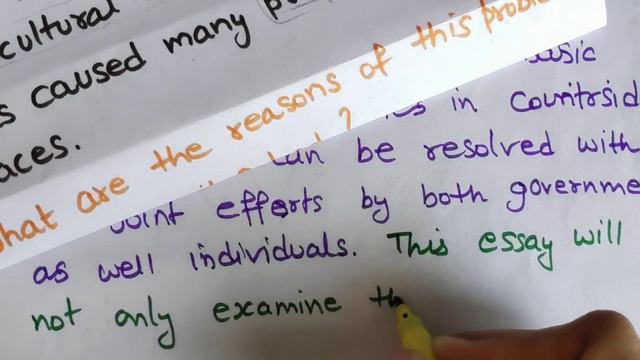 cultural
s caused many
aces.
hat are the reasons of this
asic
in Countrsid
can be resolved with
joint efferts by both governme
as well individuals. This essay will
not only examine th